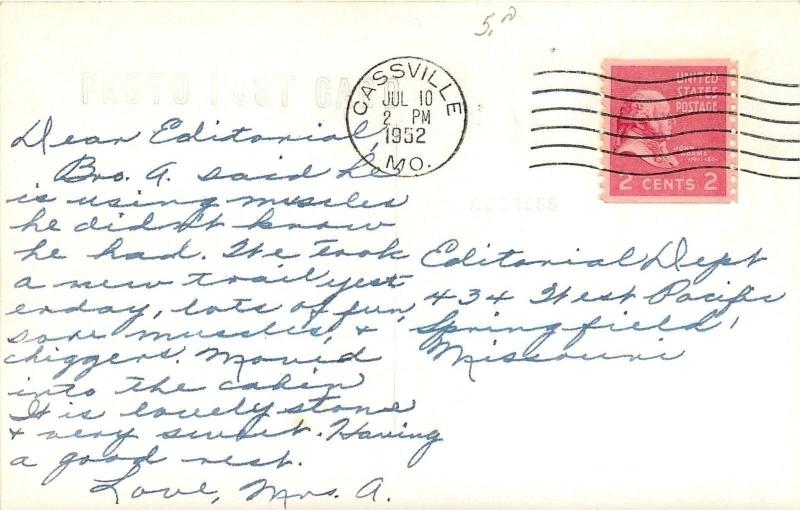 5.
PHOTO POST CARD
CASSVILLE
JUL 10
2 PM
1952
MO.
UNITED
STATES
POSTAGE
JOHN
ADAMS
2 CENTS 2
ADDRESS
Dear Editorial,
Bro. A. said he
is using muscles
he didn't know
he had. We took
a new trail yest
erday, lots of fun,
sore muscles, &
chiggers. Moved
into the cabin
It is lovely stone
& very sweet. Having
a good rest.
Love, Mrs. A.
Editorial Dept
434 West Pacific
Springfield,
Missouri